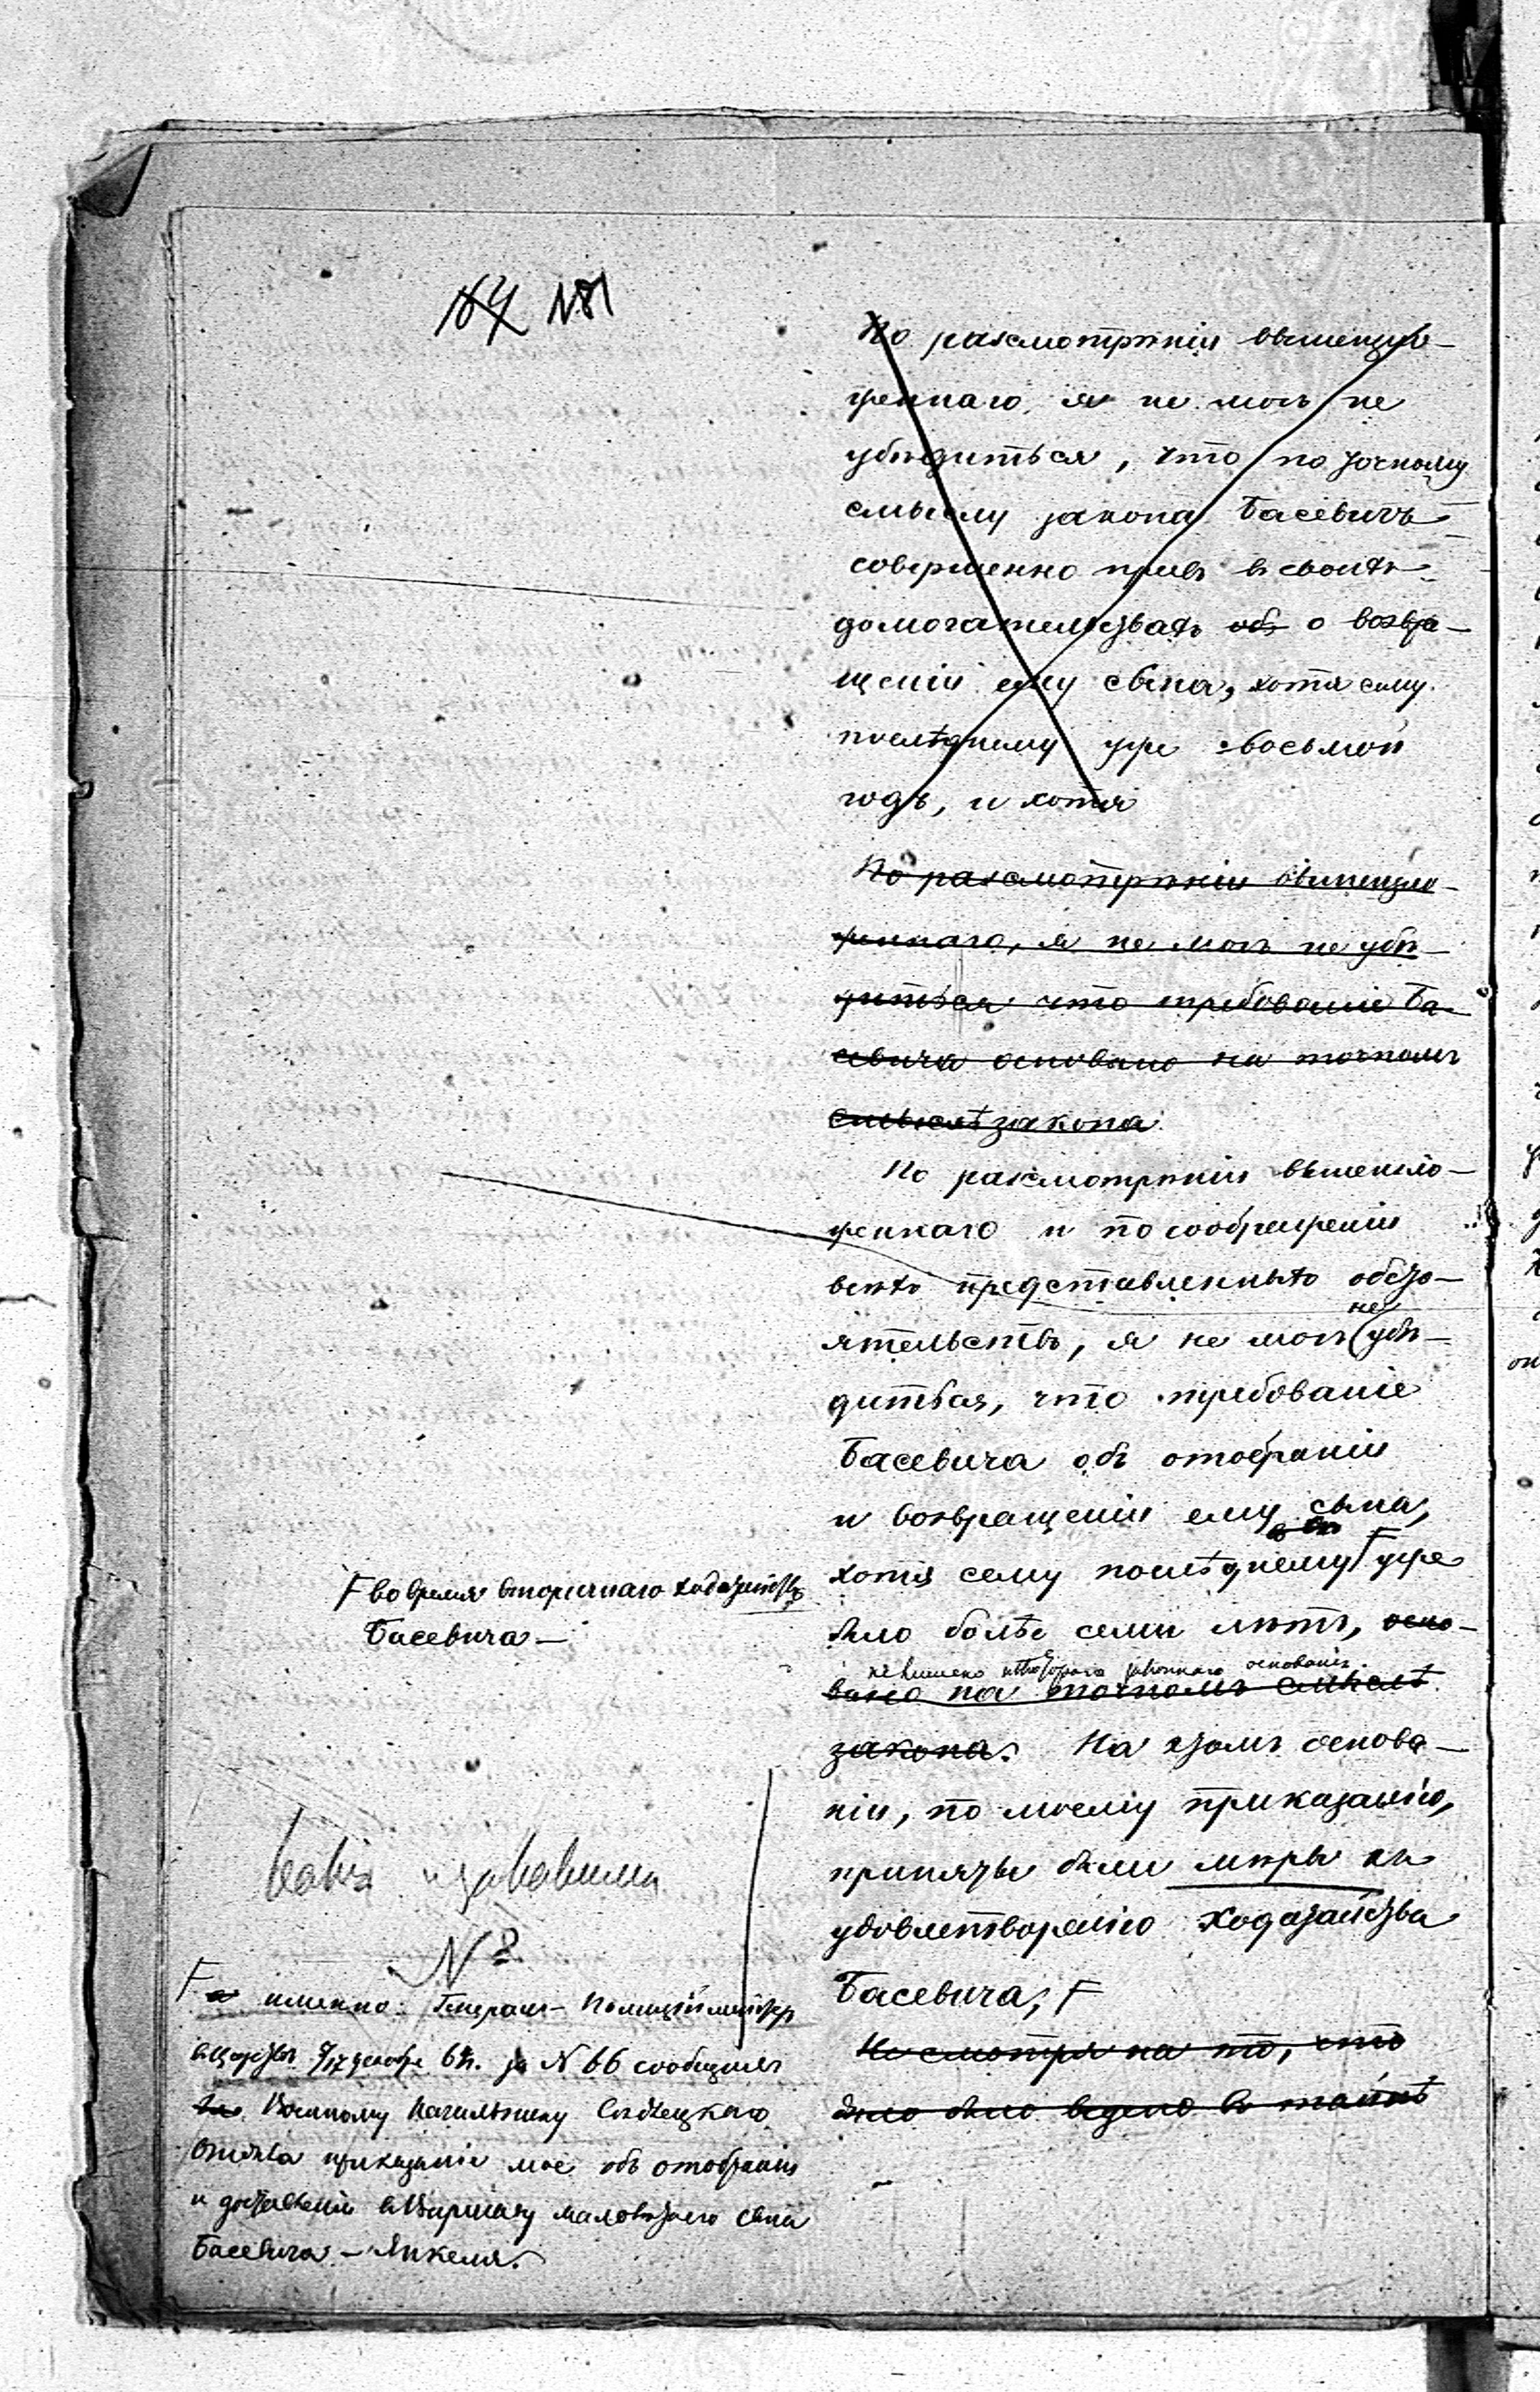 164 №81
По разсмотрѣніи вышеизло-
женнаго, я не могъ не
убѣдиться, что по точному
смыслу закона Басевичъ
совершенно правъ въ своихъ
домогательствахъ объ о возвра-
щеніи ему сына, хотя сему
послѣднему уже восьмой
годъ, и хотя
По разсмотрѣніи вышеизло-
женнаго, я не могъ не убѣ-
диться что требованіе Ба-
севича основано на точномъ
смыслѣ закона
По разсмотрѣніи вышеизло-
женнаго и по соображеніи
всѣхъ представленныхъ обсто-
не
ятельствъ, я не могъ убѣ-
диться, что требованіе
Басевича объ отобраніи
и возвращеніи ему сына,
хотя сему послѣднему F уже
F во время вторичнаго ходатайства
Басевича—
было болѣе семи лѣтъ, осно-
не лишено нѣкотораго законнаго основанія.
вано на точномъ смыслѣ
закона. На этомъ основа-
ніи, по моему приказанію,
приняты были мѣры къ
удовлетворенію ходатайства
Басевича, F
Не смотря на то, что
дѣло было ведено въ тайнѣ
№
F а именно: Генералъ-Полиціймейстеръ
въ Царствѣ 5/17 декабря 65г. за № 66 сообщилъ
Военному Начальнику Сѣдлецкаго
Отдѣла приказаніе мое объ отобраніи
и доставленіи въ Варшаву малолѣтняго сына
Басевича — Янкеля.